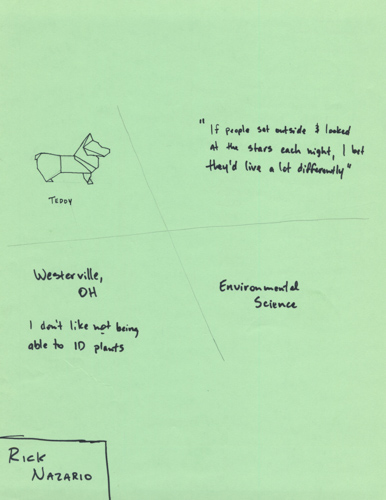 "If people sat outside & looked
at the stars each night, I bet
they'd live a lot differently"
TEDDY
Westerville,
OH
I don't like not being
able to ID plants
Environmental
Science
RICK
NAZARIO